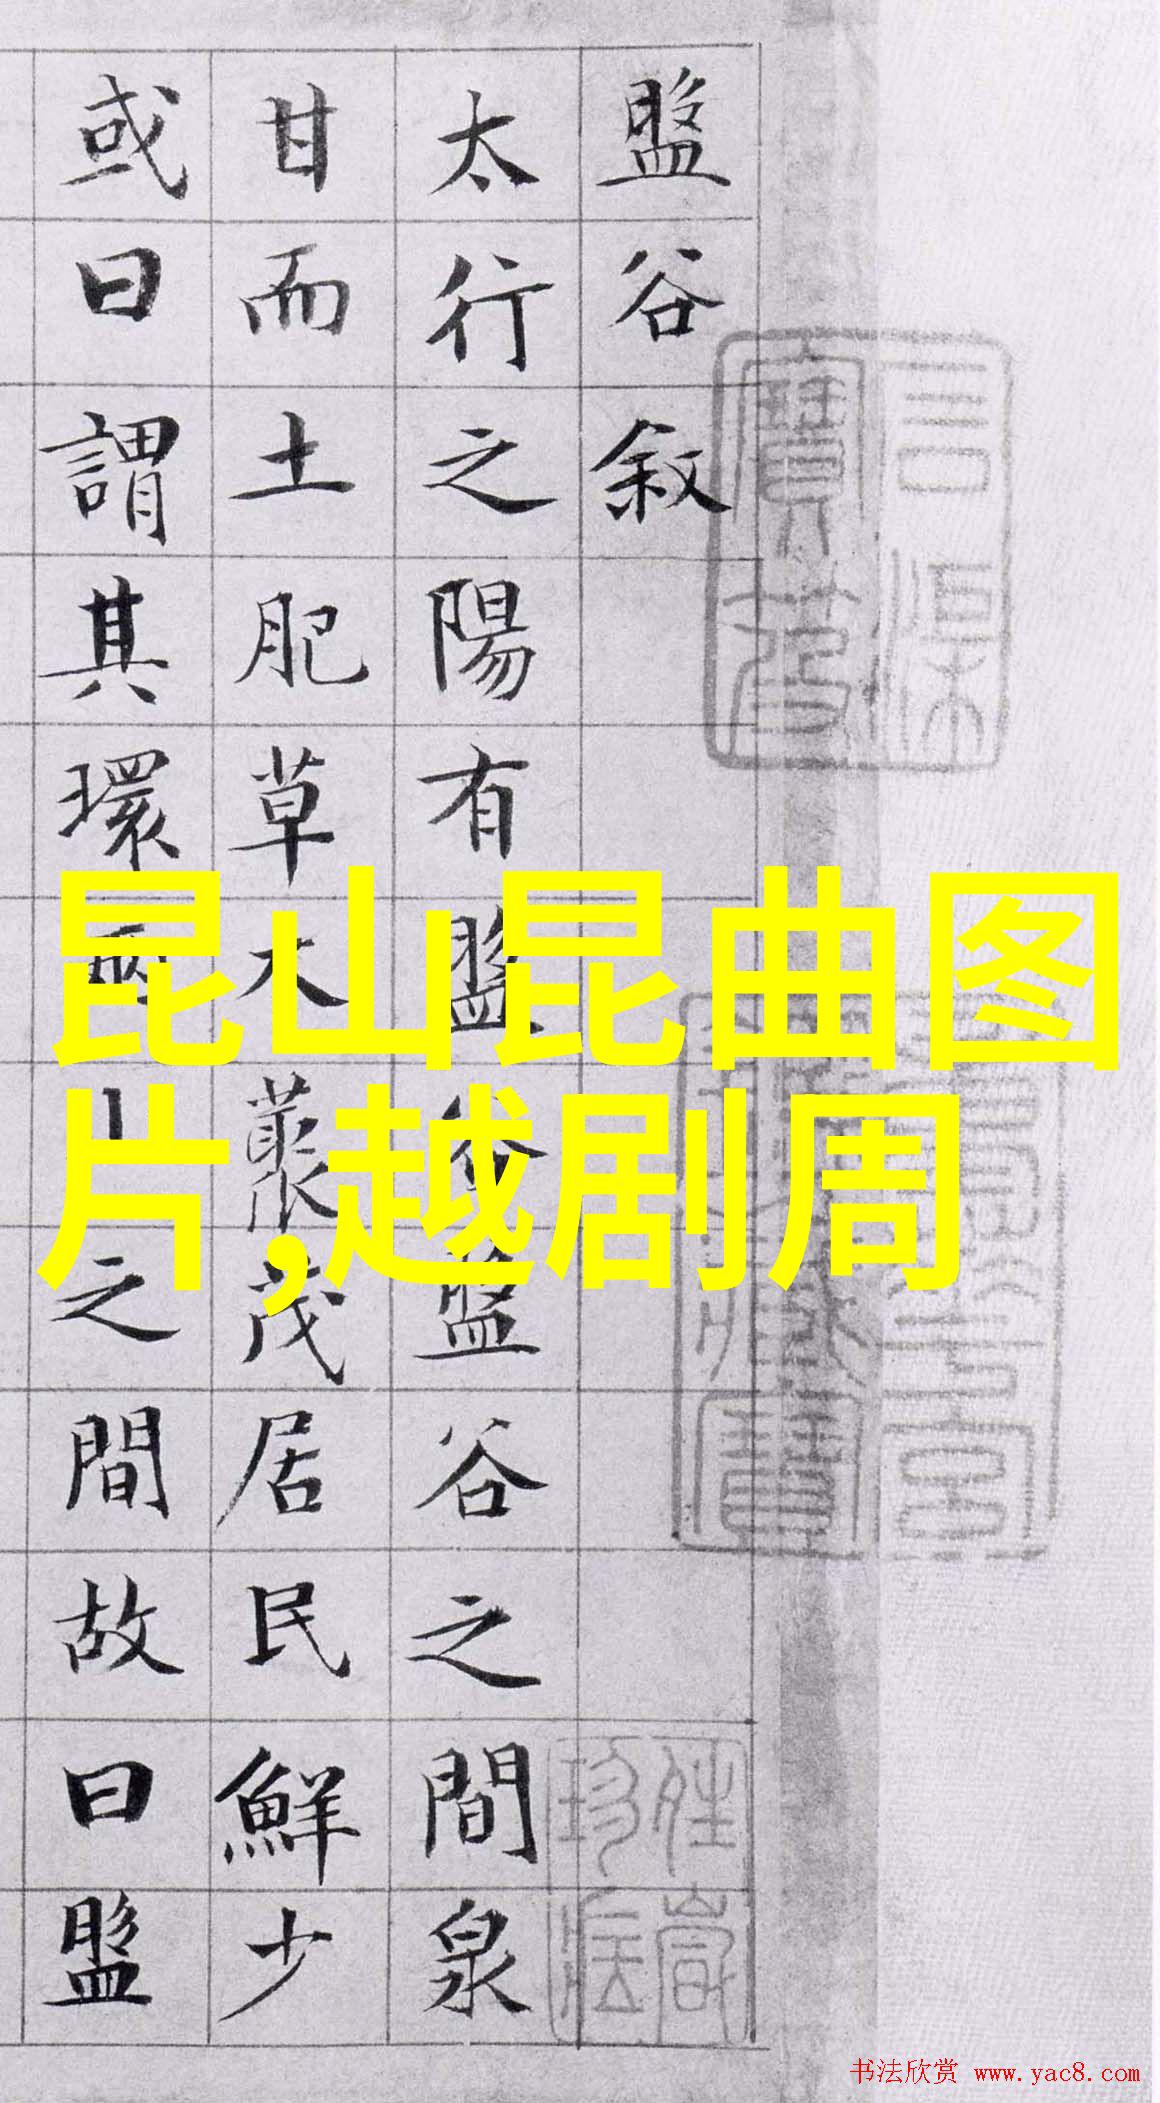 盤谷敘
太行之陽有盤谷盤谷之間泉
甘而土肥草木藂茂居民鮮少
或曰謂其環兩山之間故曰盤
昆山昆曲图
片,越剧周
书法欣赏 www.yac8.com